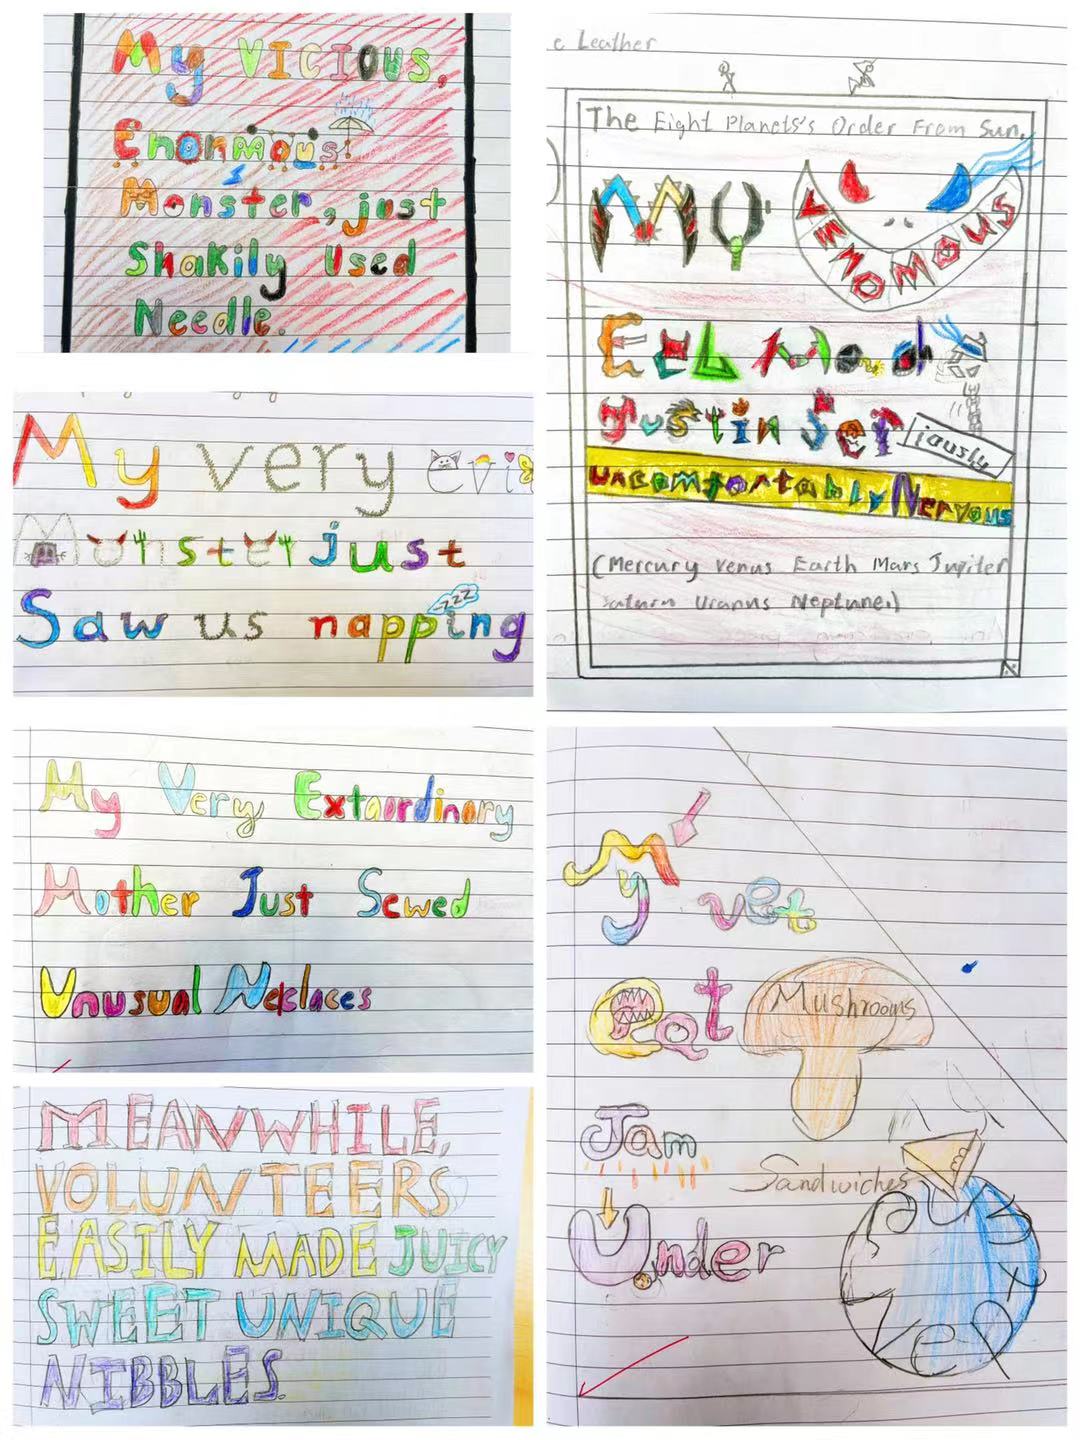 My VICIOUS,
Enormous
Monster, just
Shakily Used
Needle.
e Leather
The Eight Planets's Order From Sun.
MY VENOMOUS
Justin Ser
iously
uncomfortably Nervous
(Mercury Venus Earth Mars Jupiter
Saturn Uranus Neptune.)
My very evil
Monster just
zzz
Saw us napping
My Very Extaordinary
Mother Just Sewed
Unusual Necklaces
My
vet
eat Mushrooms
Jam
Sandwiches
Under
MEANWHILE,
VOLUNTEERS
EASILY MADE JUICY
SWEET UNIQUE
NIBBLES.